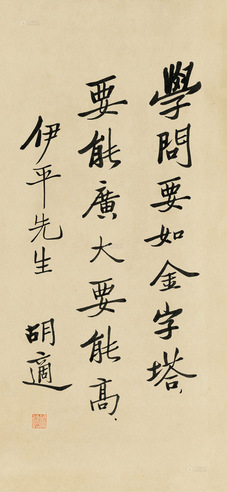 學問要如金字塔.
要能廣大要能高.
伊平先生
胡適